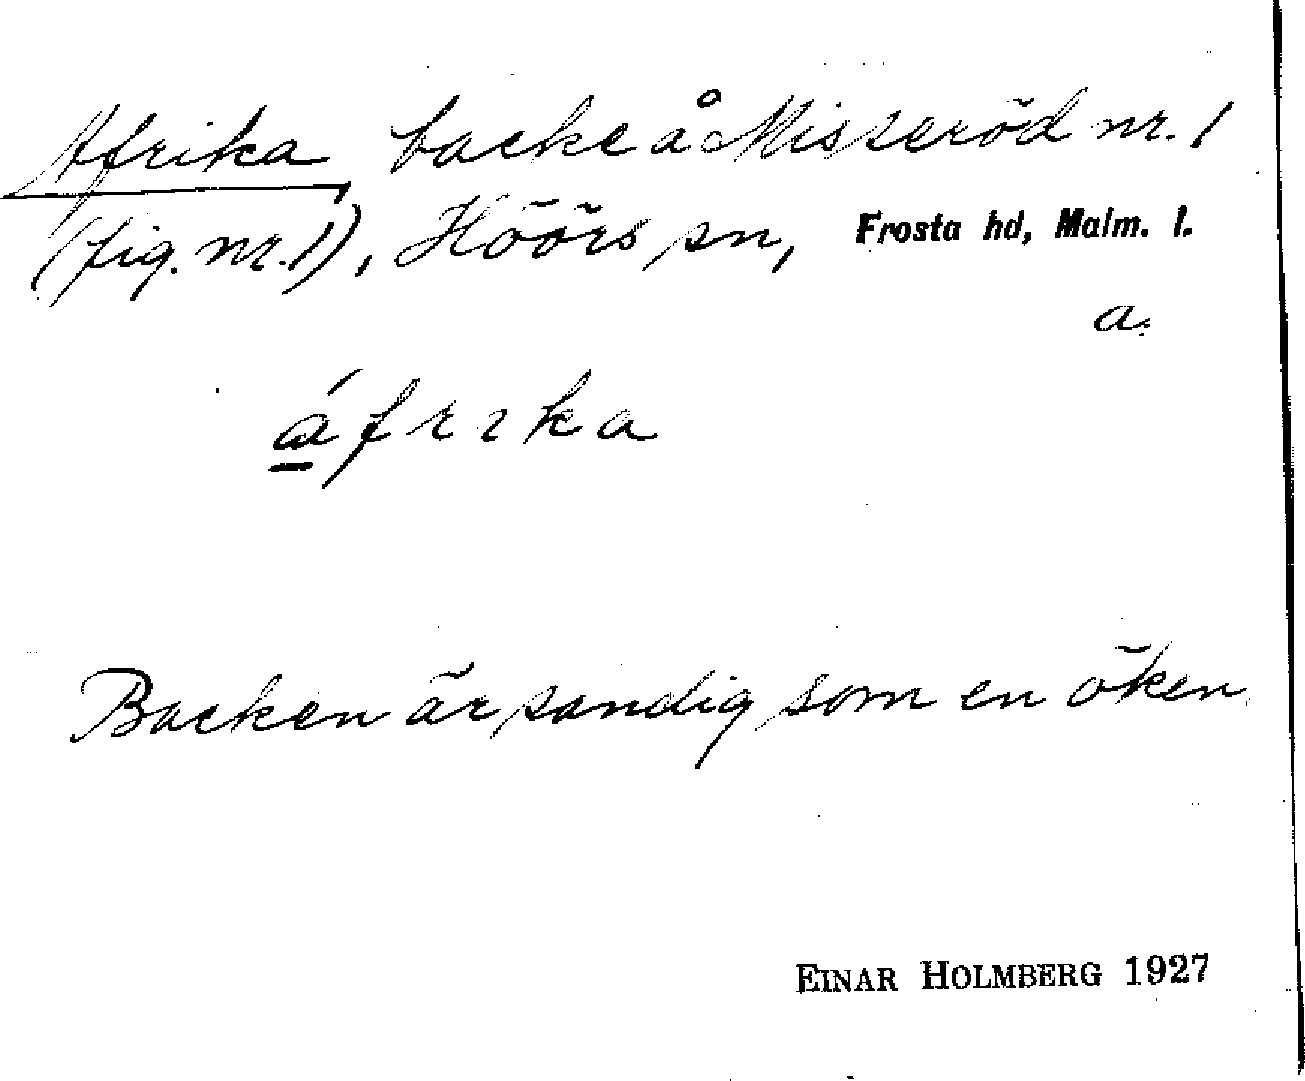 Afrika, backe å Misseröd nr. 1
(fig. nr. 1), Höörs sn, Frosta hd, Malm. l.
a.
áfrıka
Backen är sandig som en öken.
EINAR HOLMBERG 1927